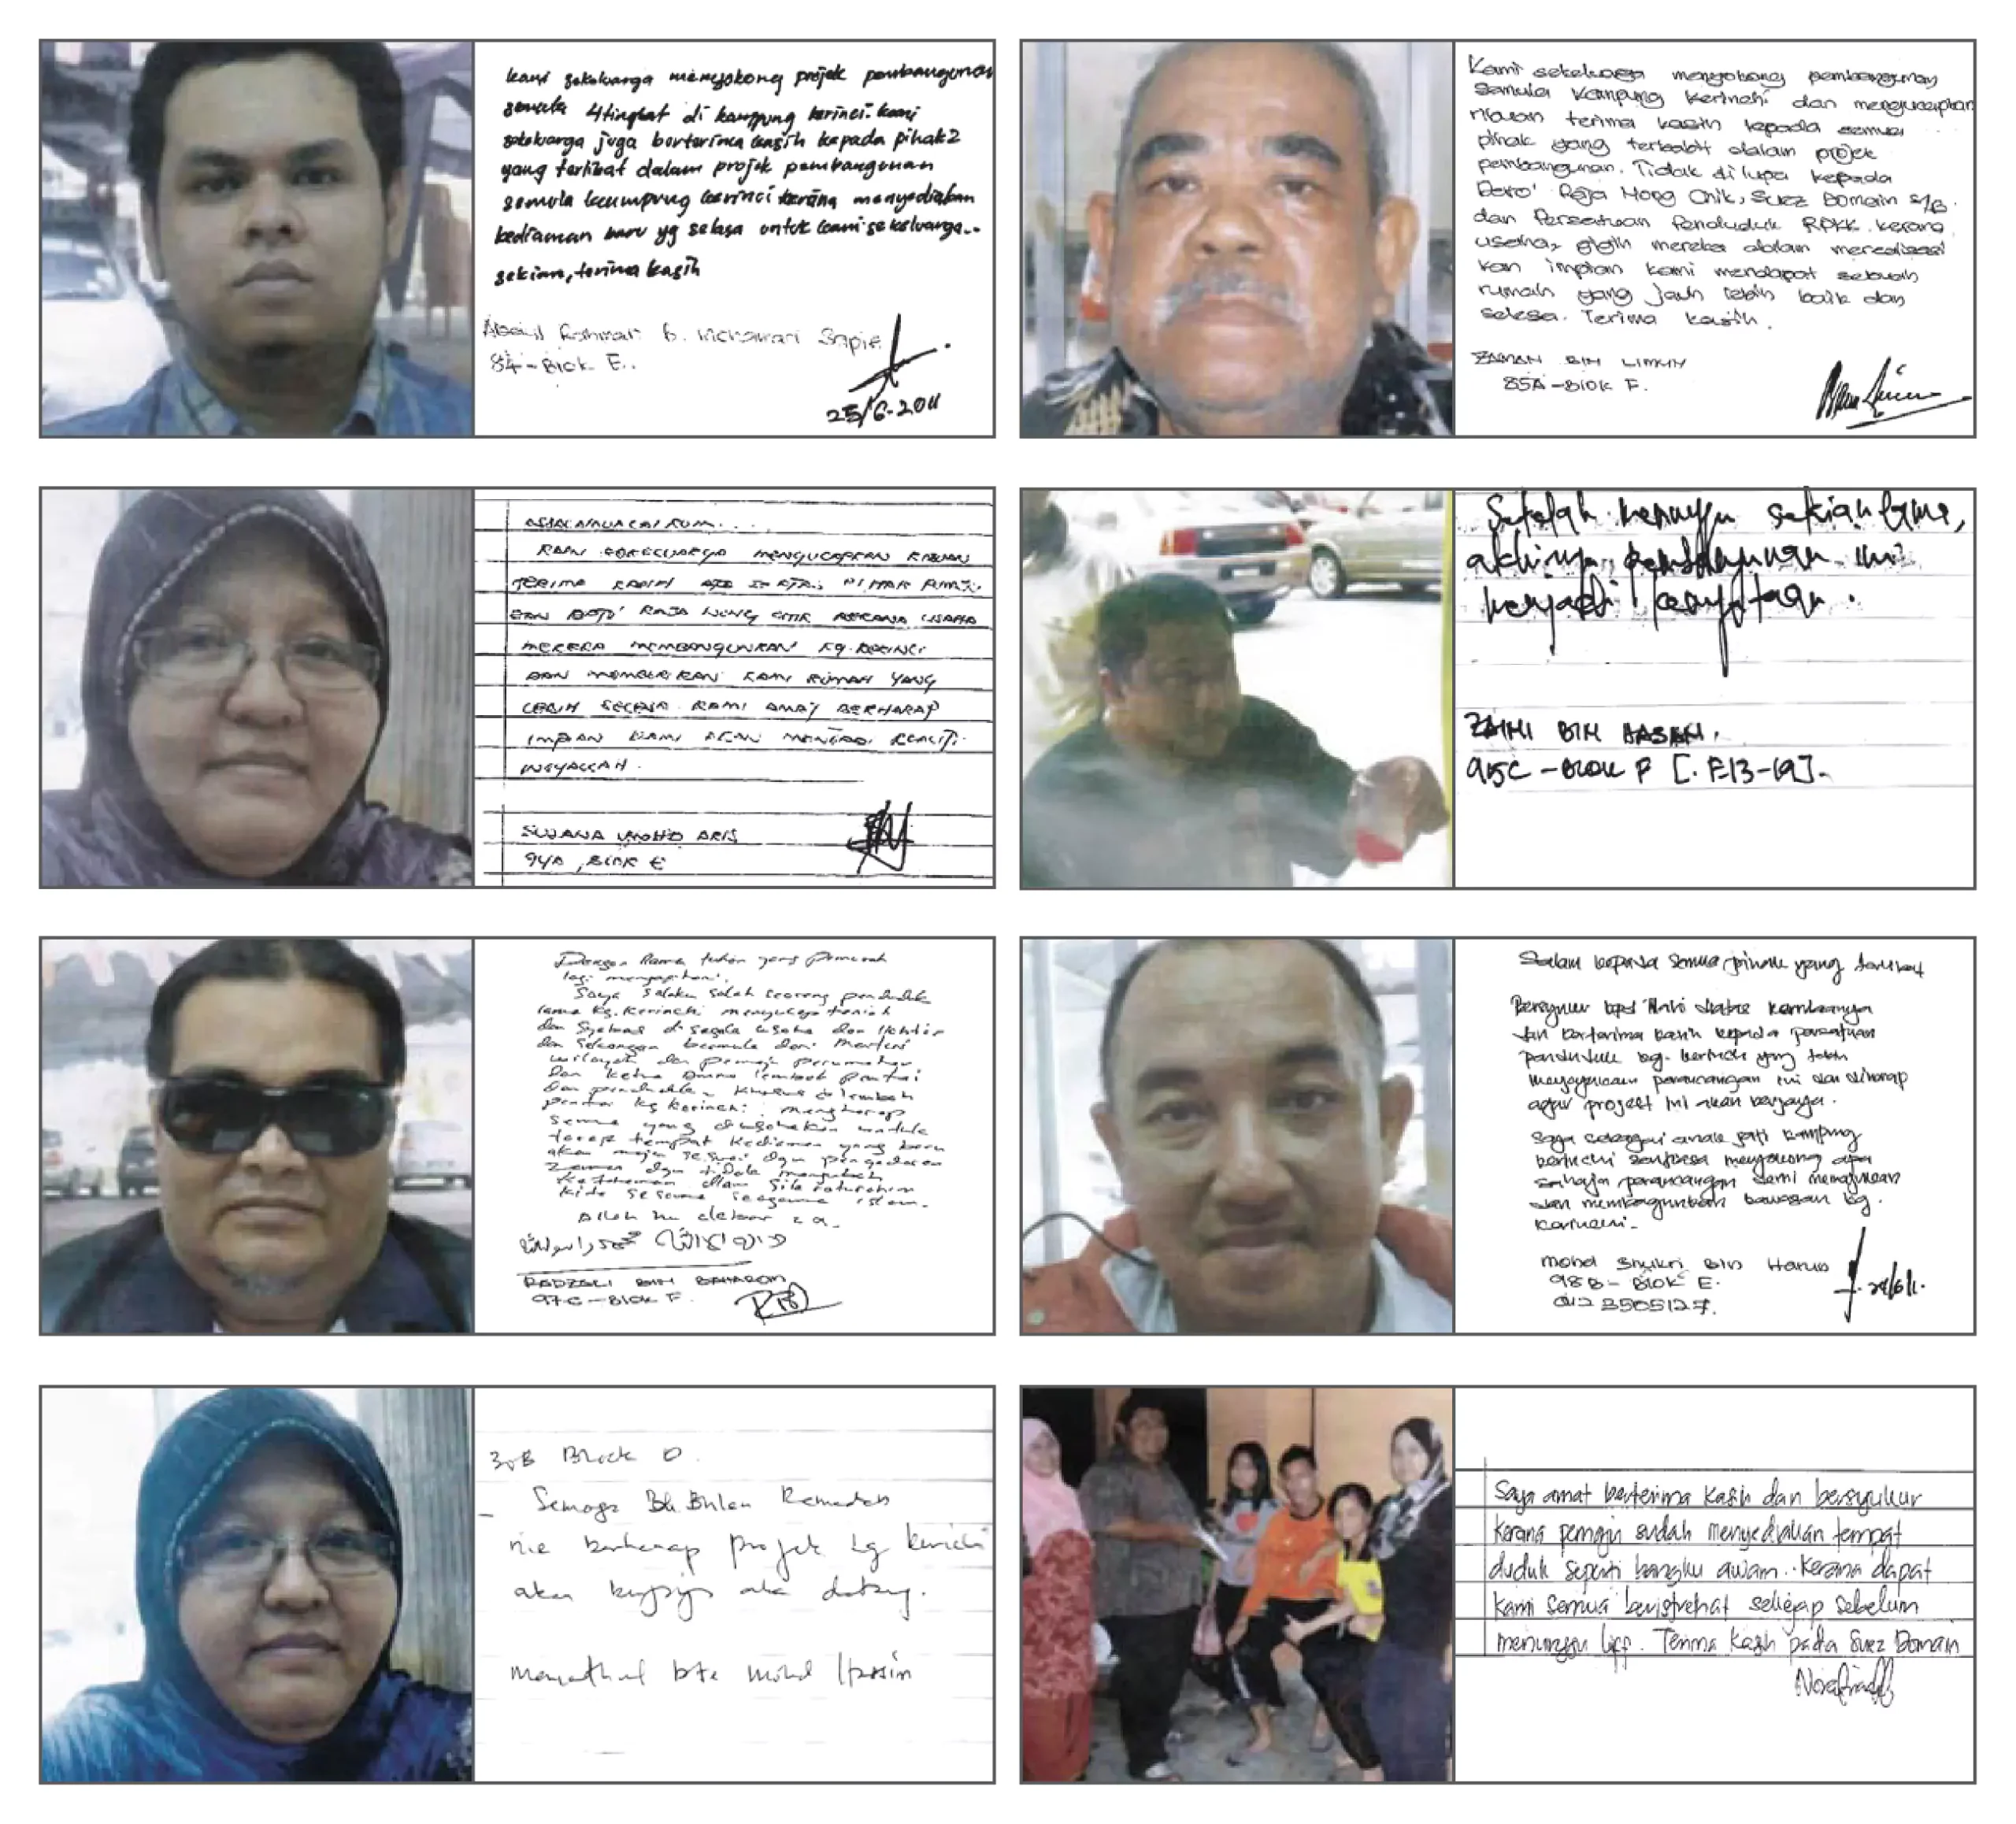 kami sekeluarga menyokong projek pembangunan
semula 4tingkat di kampung kerinci. kami
sekeluarga juga berterima kasih kepada pihak2
yang terlibat dalam projek pembangunan
semula kaumpung kerinci kerana menyediakan
kediaman baru yg selasa untuk kami sekeluarga..
sekian, terima kasih
Abdul Rahman B.
84-Blok E.
25/6-2011
Kami sekeluarga menyokong pembangunan
semula Kampung Kerinchi dan mengucapkan
ribuan terima kasih kepada semua
pihak yang terbabit dalam projek
pembangunan. Tidak di lupa kepada
Dato' Raja Nong Chik, Suez Domain S/B
dan Persatuan Penduduk RPKK kerana
usaha, gigih mereka dalam merealisasi
kan impian kami mendapat sebuah
rumah yang jauh lebih baik dan
selesa. Terima kasih.
ZAMAN BIN LIMUN
85A-Blok F.
ASSALAMUALAIKUM...
KAMI SEKELUARGA MENGUCAPKAN RIBUAN
TERIMA KASIH
DAN DATO' RAJA NONG CHIK KERANA USAHA
MEREKA MEMBANGUNKAN KG. KERINCI
DAN MEMBERIKAN KAMI RUMAH YANG
LEBIH SELESA. KAMI AMAT BERHARAP
IMPIAN KAMI AKAN MENJADI REALITI.
INSYALLAH.
SUJANA MOHD ARIS
94A, BLOK E
Setelah menunggu sekian lama,
akhirnya pembangunan ini
menjadi kenyataan.
ZAINI BIN HASAN.
95C-BLOK F [.F-13-19].
Dengan Nama tuhan yang Pemurah
lagi mengasihani.
Saya selaku salah seorang penduduk
lama Kg. Kerinchi mengucap tahniah
dan Syabas di segala usaha dan Ikhtiar
dan Sokongan bermula dari Menteri
wilayah dan
dan Ketua Lembah Pantai
dan penduduk Khusus di lembah
pantai Kg Kerinchi. mengharap
semua yang di usahakan untuk
tempat Kediaman yang baru
akan maju sesuai dgn pengedaran
zaman dgn tidak mengubah
dlam Silaturahim
kita sesama seagama islam.
RADZALI BIN BAHAROM
97C-Blok F.
Salam kepada semua pihak yang terlibat
Bersyukur kpd Illahi diatas
dan berterima kasih kepada persatuan
penduduk kg. kerinchi yang telah
menjayakan perancangan ini dan diharap
agar projek ini akan berjaya.
Saya sebagai anak jati kampung
kerinchi sentiasa menyokong apa
sahaja perancangan demi memajukan
dan membangunkan kawasan kg.
Kerinchi.
Mohd Shukri Bin Harun
98B-Blok E.
012 3505127.
30B Block D.
Semoga Bln Ramadan
nie berharap projek kg kerinchi
akan
bte Mohd
Saya amat berterima kasih dan bersyukur
kerana pemaju sudah menyediakan tempat
duduk seperti bangku awam. Kerana dapat
kami semua beristrehat sekejap sebelum
menunggu lif. Terima kasih pada Suez Domain